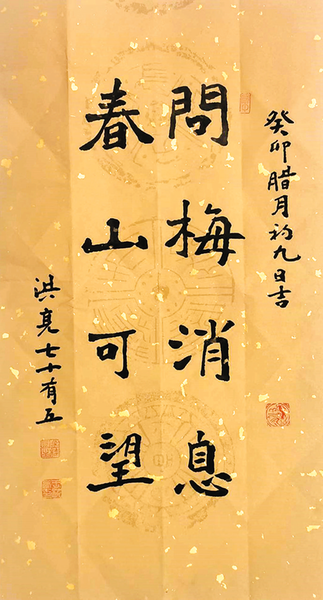 癸卯腊月初九日吉
問梅消息
春山可望
洪亮七十有五